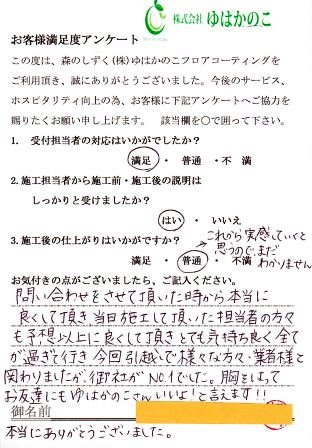 株式会社 ゆはかのこ
お客様満足度アンケート
この度は、森のしずく(株)ゆはかのこフロアコーティングを
ご利用頂き、誠にありがとうございました。今後のサービス、
ホスピタリティ向上の為、お客様に下記アンケートへご協力を
賜りたくお願い申し上げます。 該当欄を〇で囲って下さい。
1. 受付担当者の対応はいかがでしたか?
満足 ・ 普通 ・ 不 満
2.施工担当者から施工前・施工後の説明は
しっかりと受けましたか?
はい ・ いいえ
3.施工後の仕上がりはいかがですか?
これから実感していくと
思うので、まだ
わかりません
満足 ・ 普通 ・ 不満
お気付きの点がございましたら、ご記入ください。
問い合わせをさせて頂いた時から本当に
良くして頂き当日施工して頂いた担当者の方々
も予想以上に良くして頂きとても気持ち良く全て
が過ぎて行き今回引越しで様々な方々・業者様と
関わりましたが、御社がNO.1でした。胸をはって
お友達にもゆはかのこさんいいよ!と言えます!!
御名前
本当にありがとうございました。